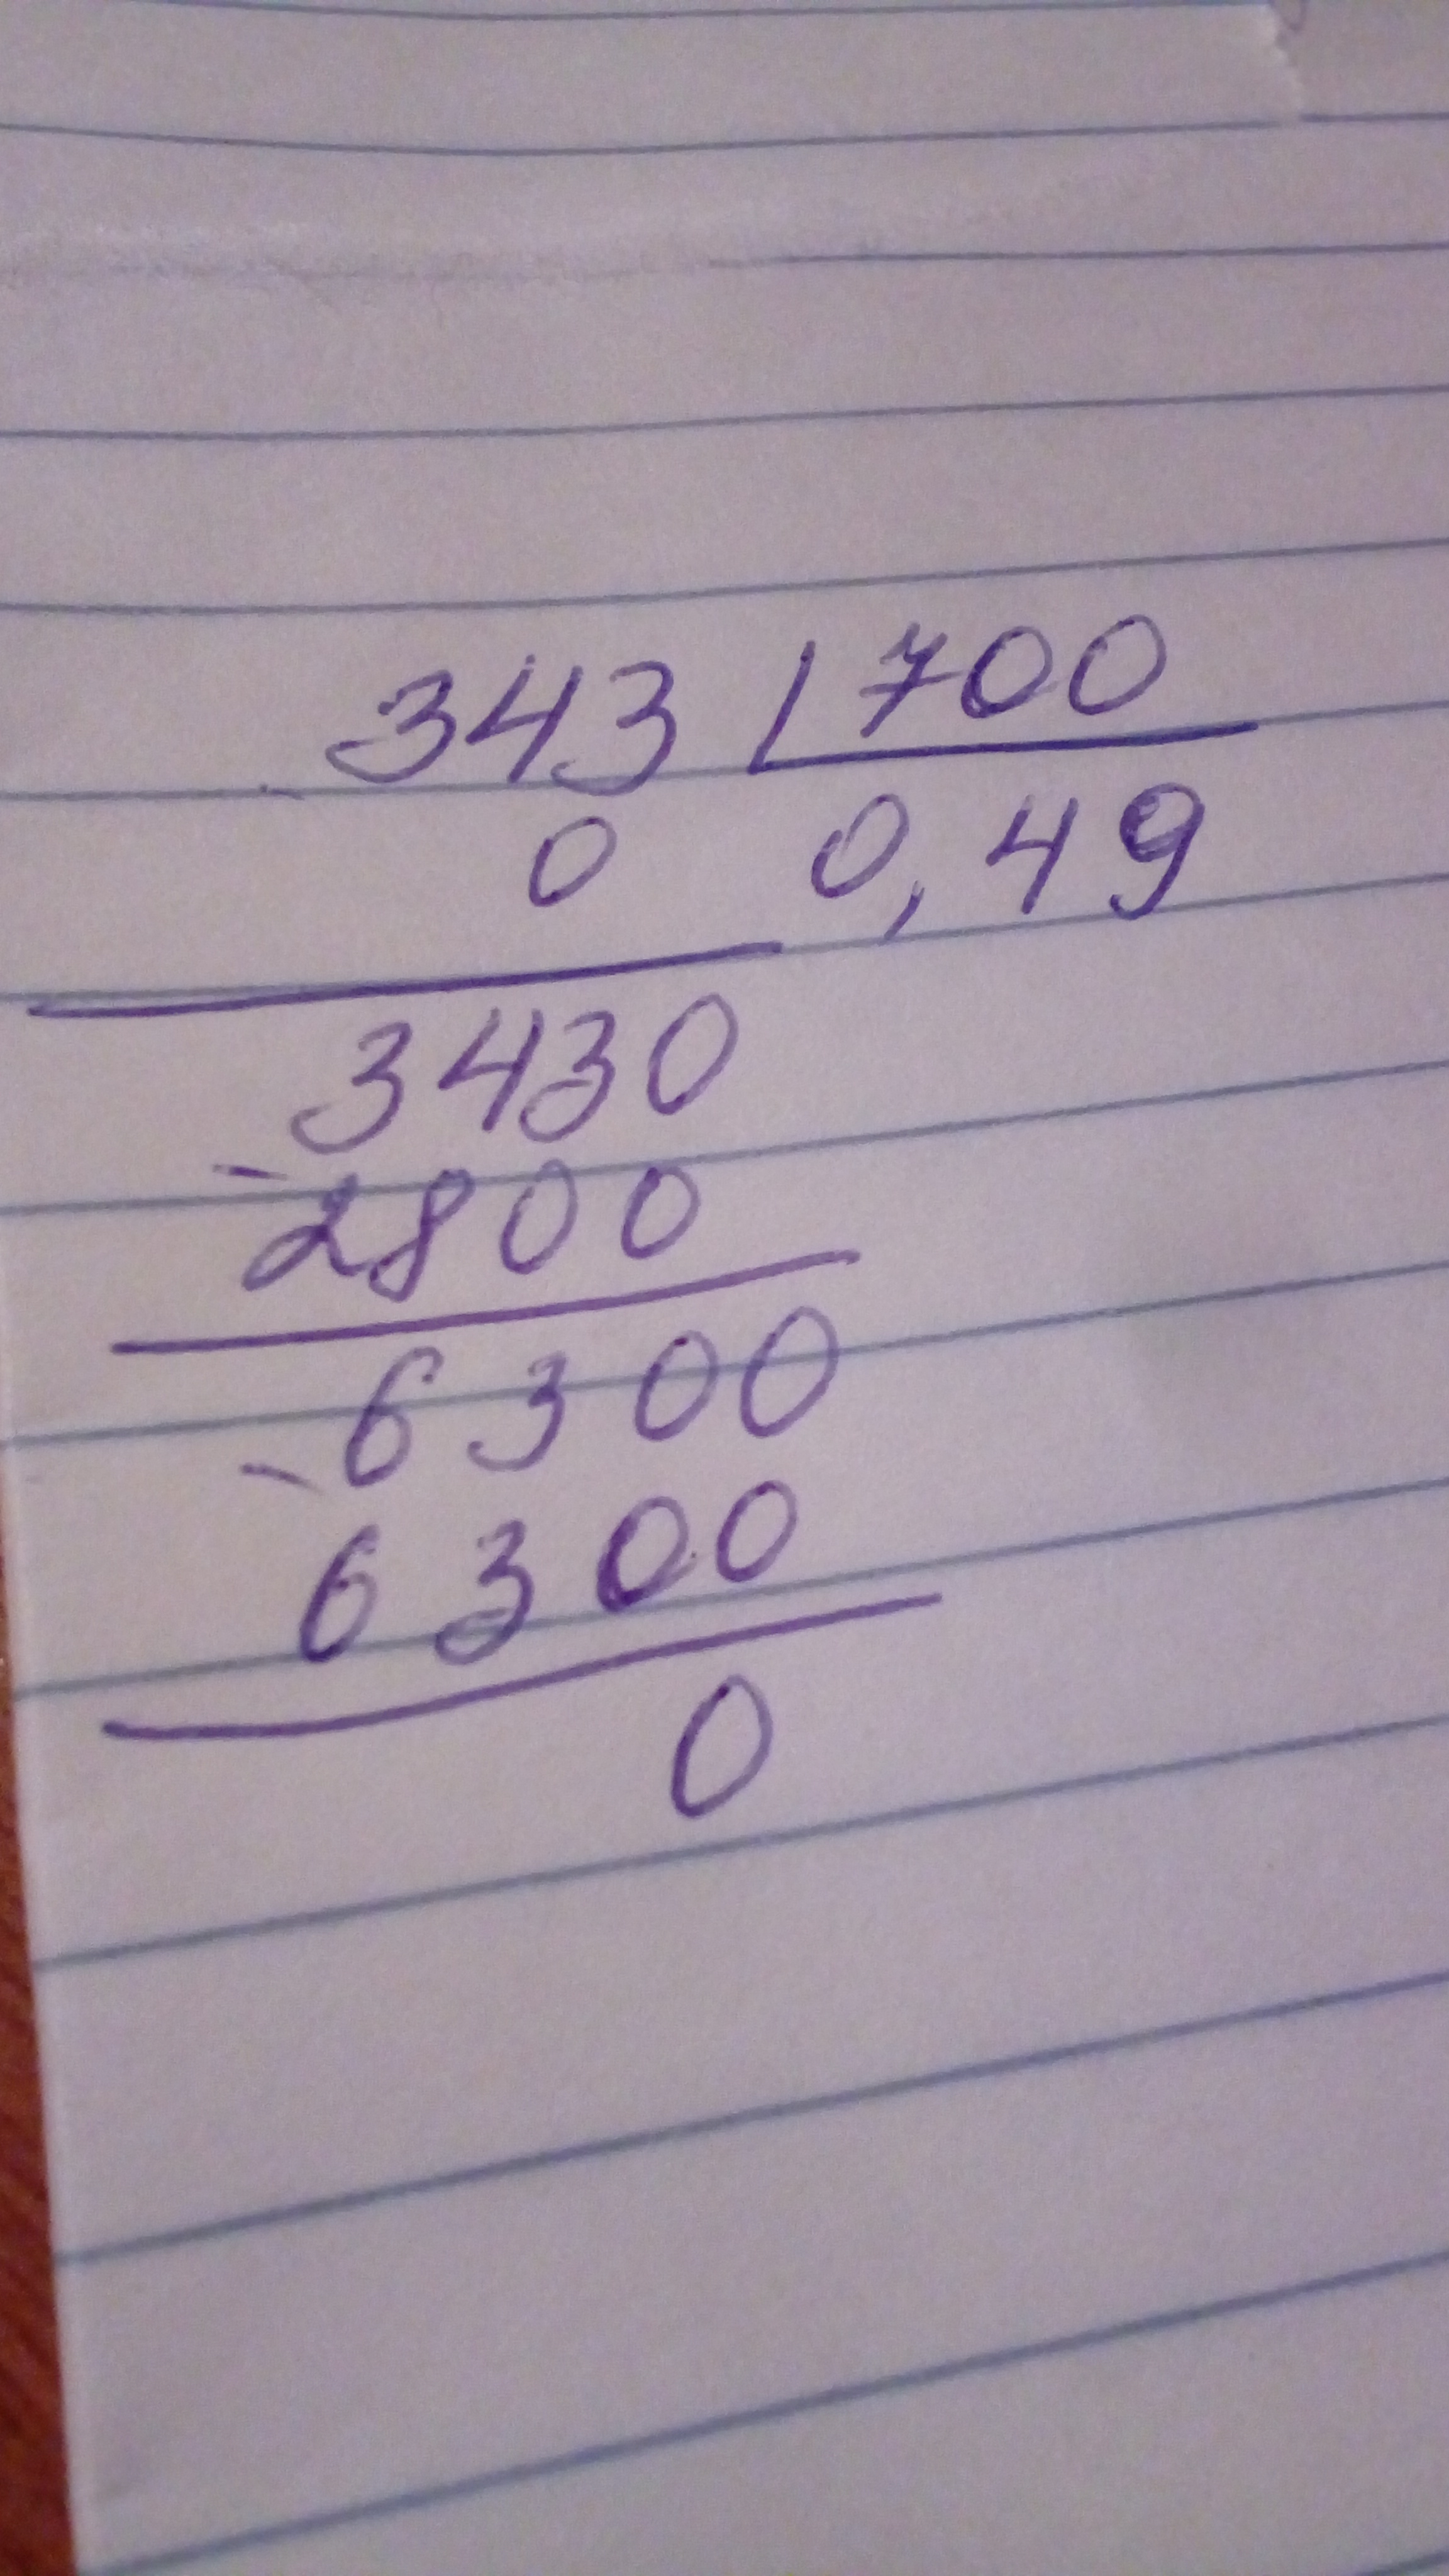 343 | 700
0 0,49
3430
- 2800
6300
- 6300
0